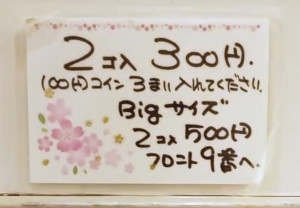 2コ入 300円.
100円コイン 3まい入れてください.
Bigサイズ
2コ入 500円
フロント9番へ.